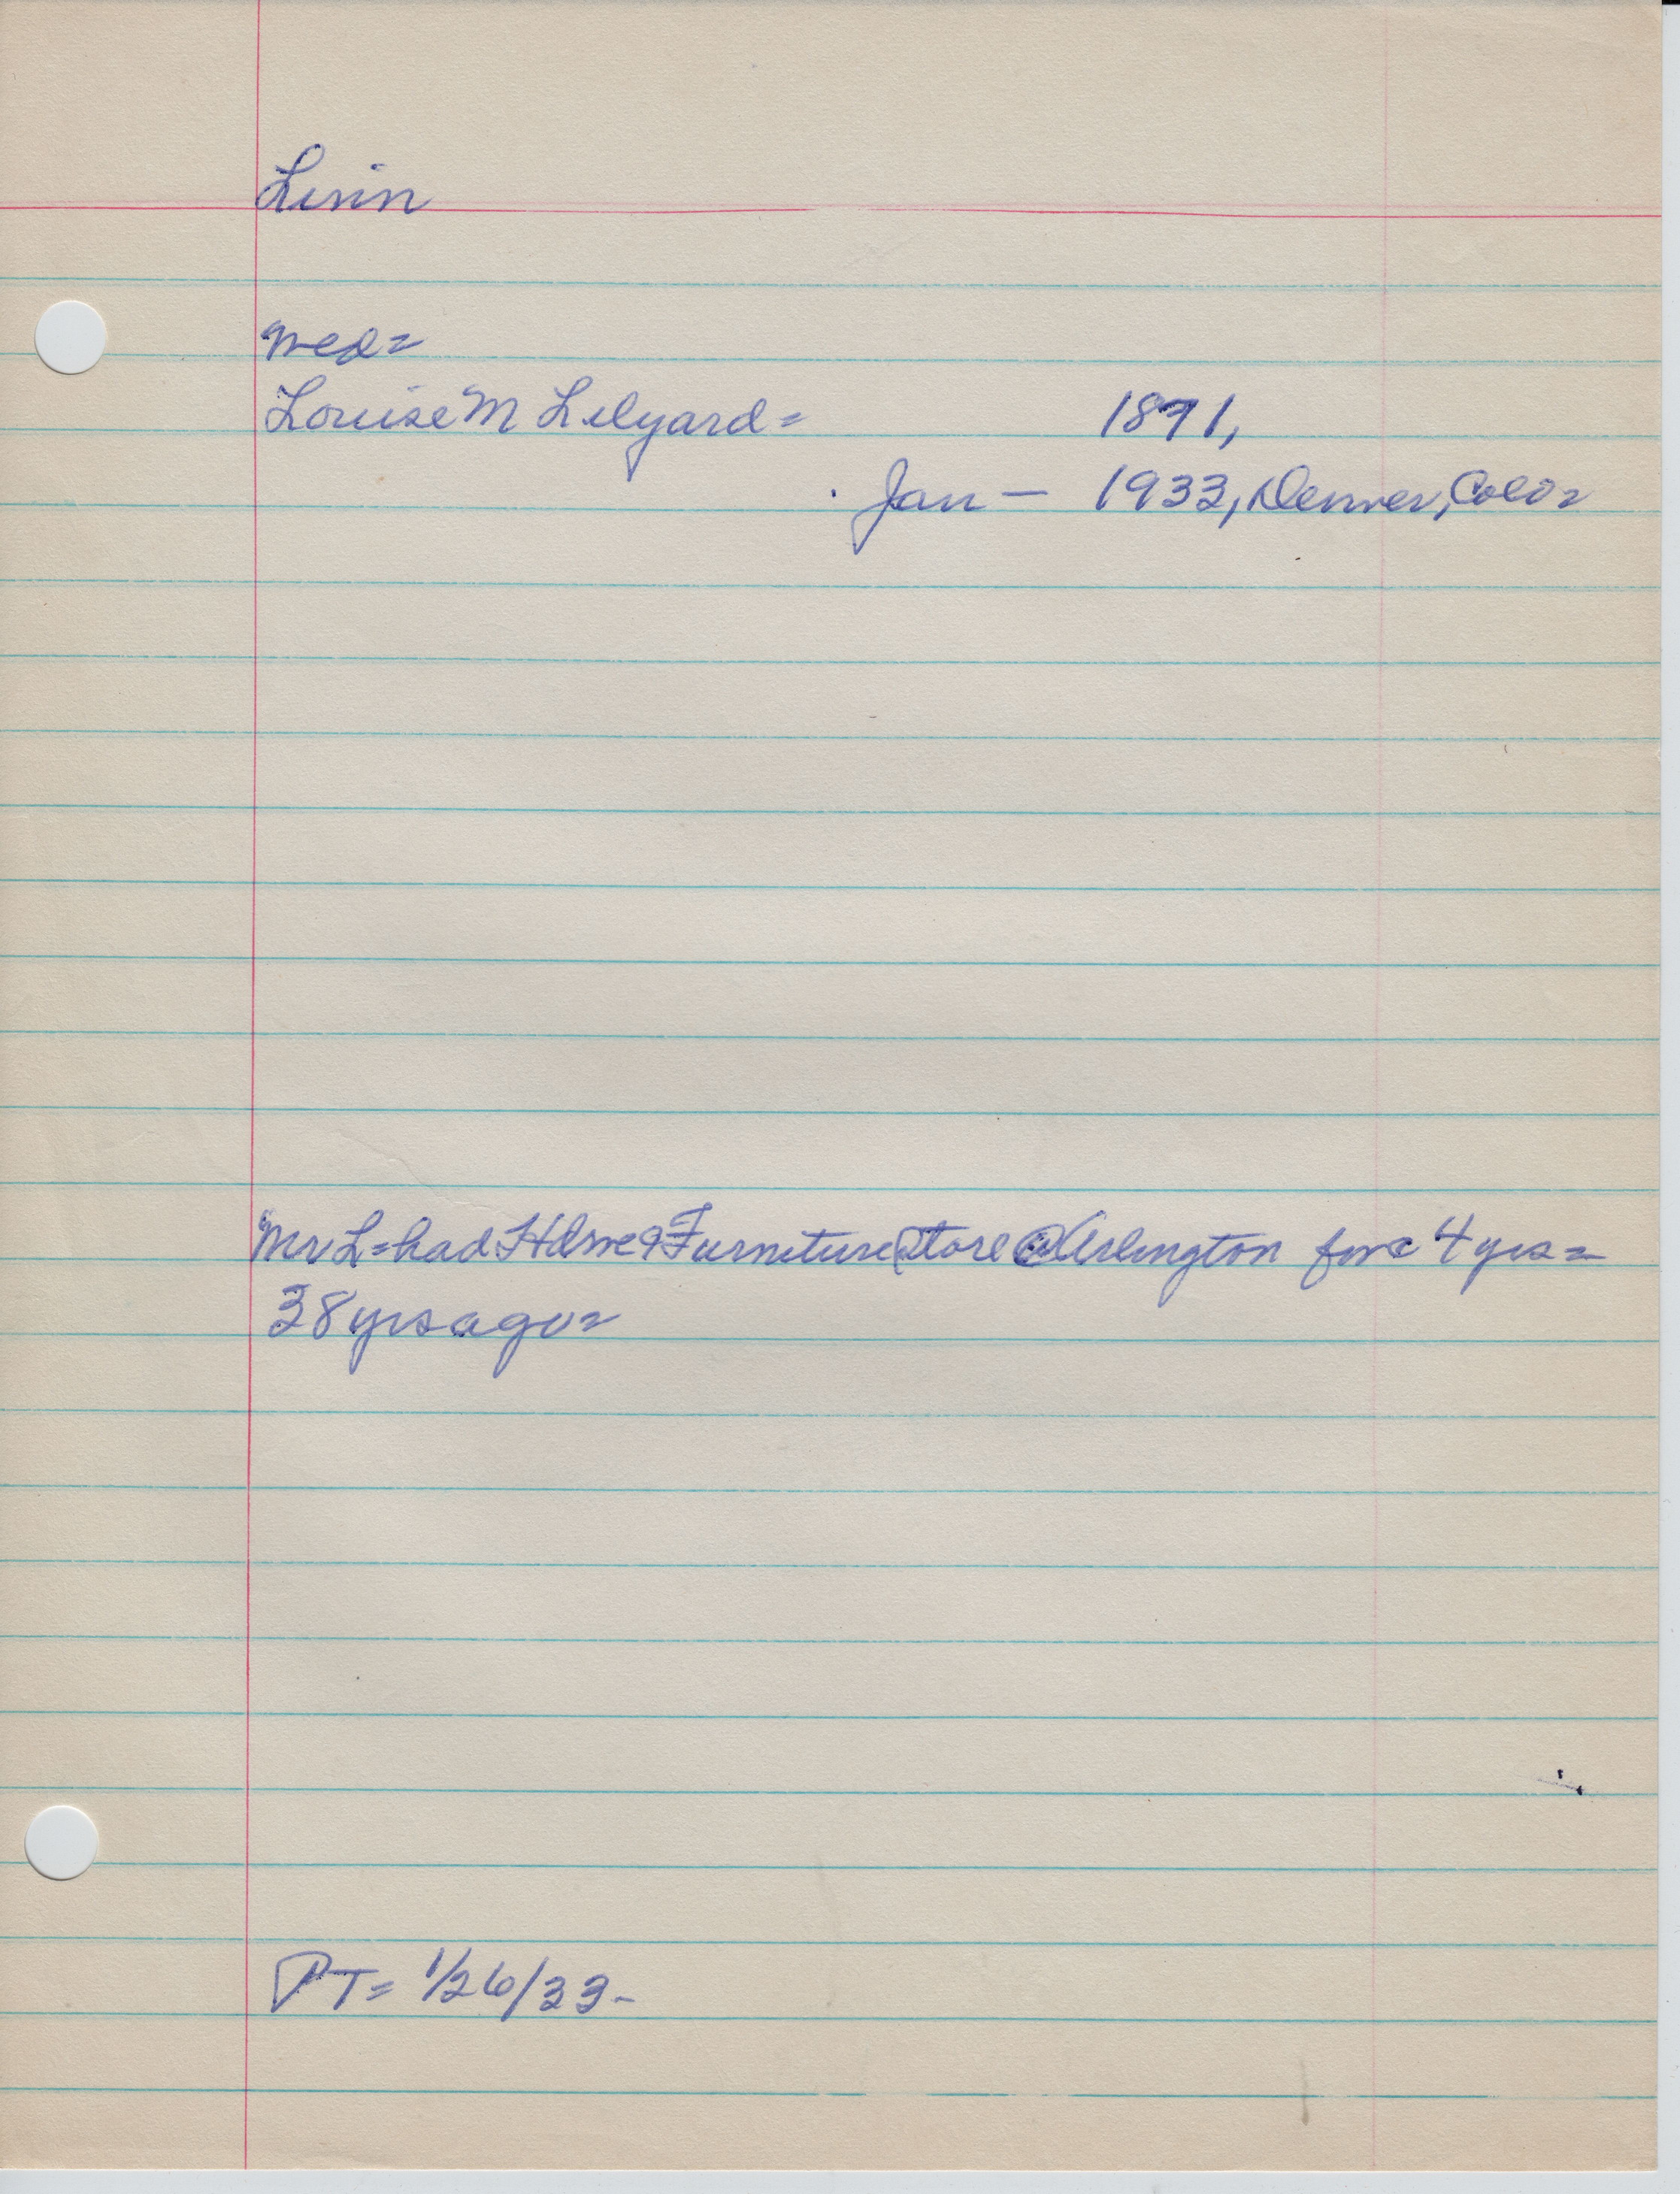 Levin
wed=
Louise M Lilyard= 1871,
Jan — 1933, Denver, Colo=
Mr L= had Hdwe & Furniture Store @ Arlington for 4 yrs=
38 yrs ago=
PT= 1/26/33-